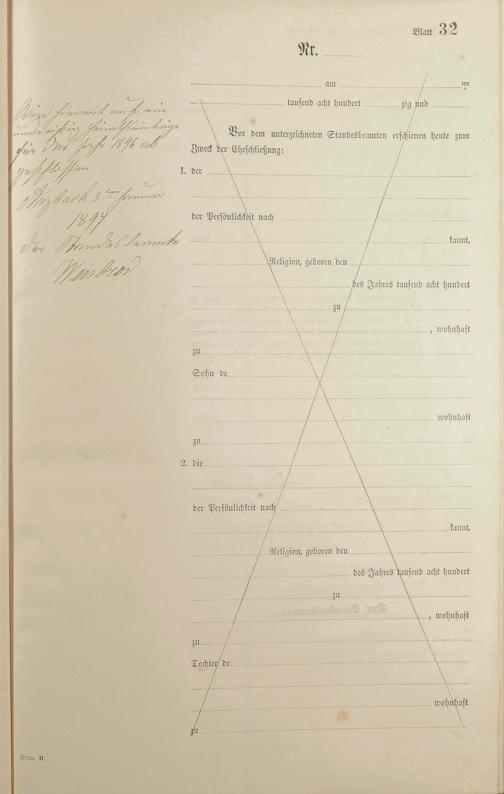 Blatt 32
Nr.
am ten
tausend acht hundert zig und
Vor dem unterzeichneten Standesbeamten erschienen heute zum
Zweck der Eheschließung:
1. der
der Persönlichkeit nach
kannt,
Religion, geboren den
des Jahres tausend acht hundert
zu
, wohnhaft
zu
Sohn de
wohnhaft
zu
2. die
der Persönlichkeit nach
kannt,
Religion, geboren den
des Jahres tausend acht hundert
zu
, wohnhaft
zu
Tochter de
wohnhaft
zu
Wird hiermit auf ein
für das Jahr 1896 ab
geschlossen
Januar
1897
Der Standesbeamte
Weisbrod
Form. II.